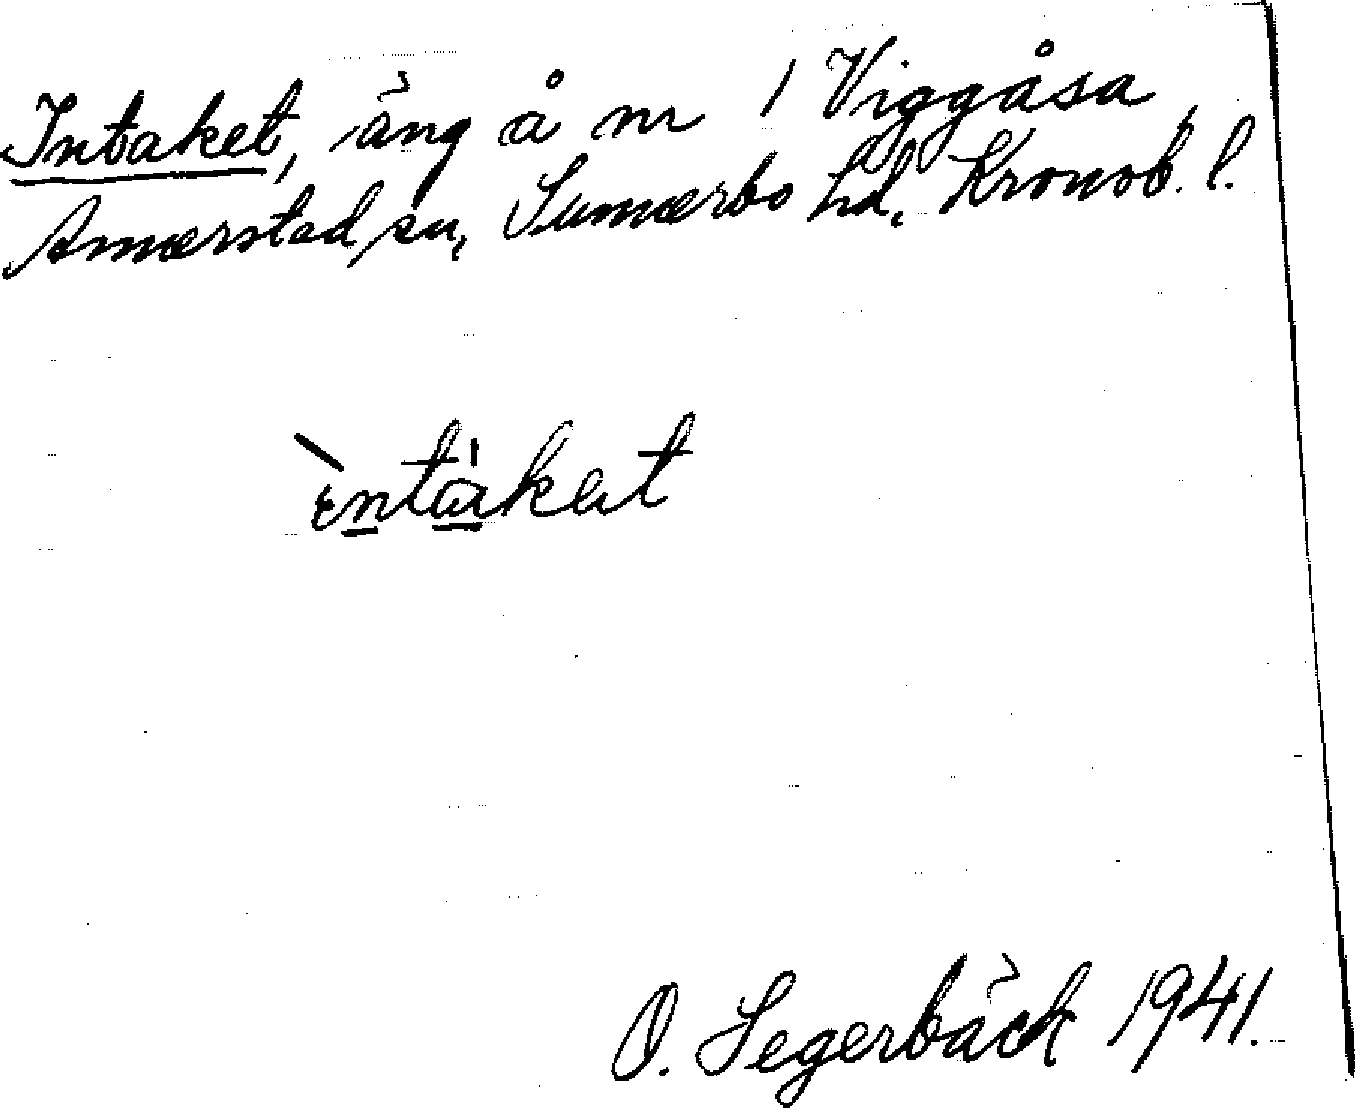 Intaket, äng å nr 1 Viggåsa,
Annerstad sn, Sunnerbo hd, Kronob. l.
intaket
O. Segerbäck 1941.